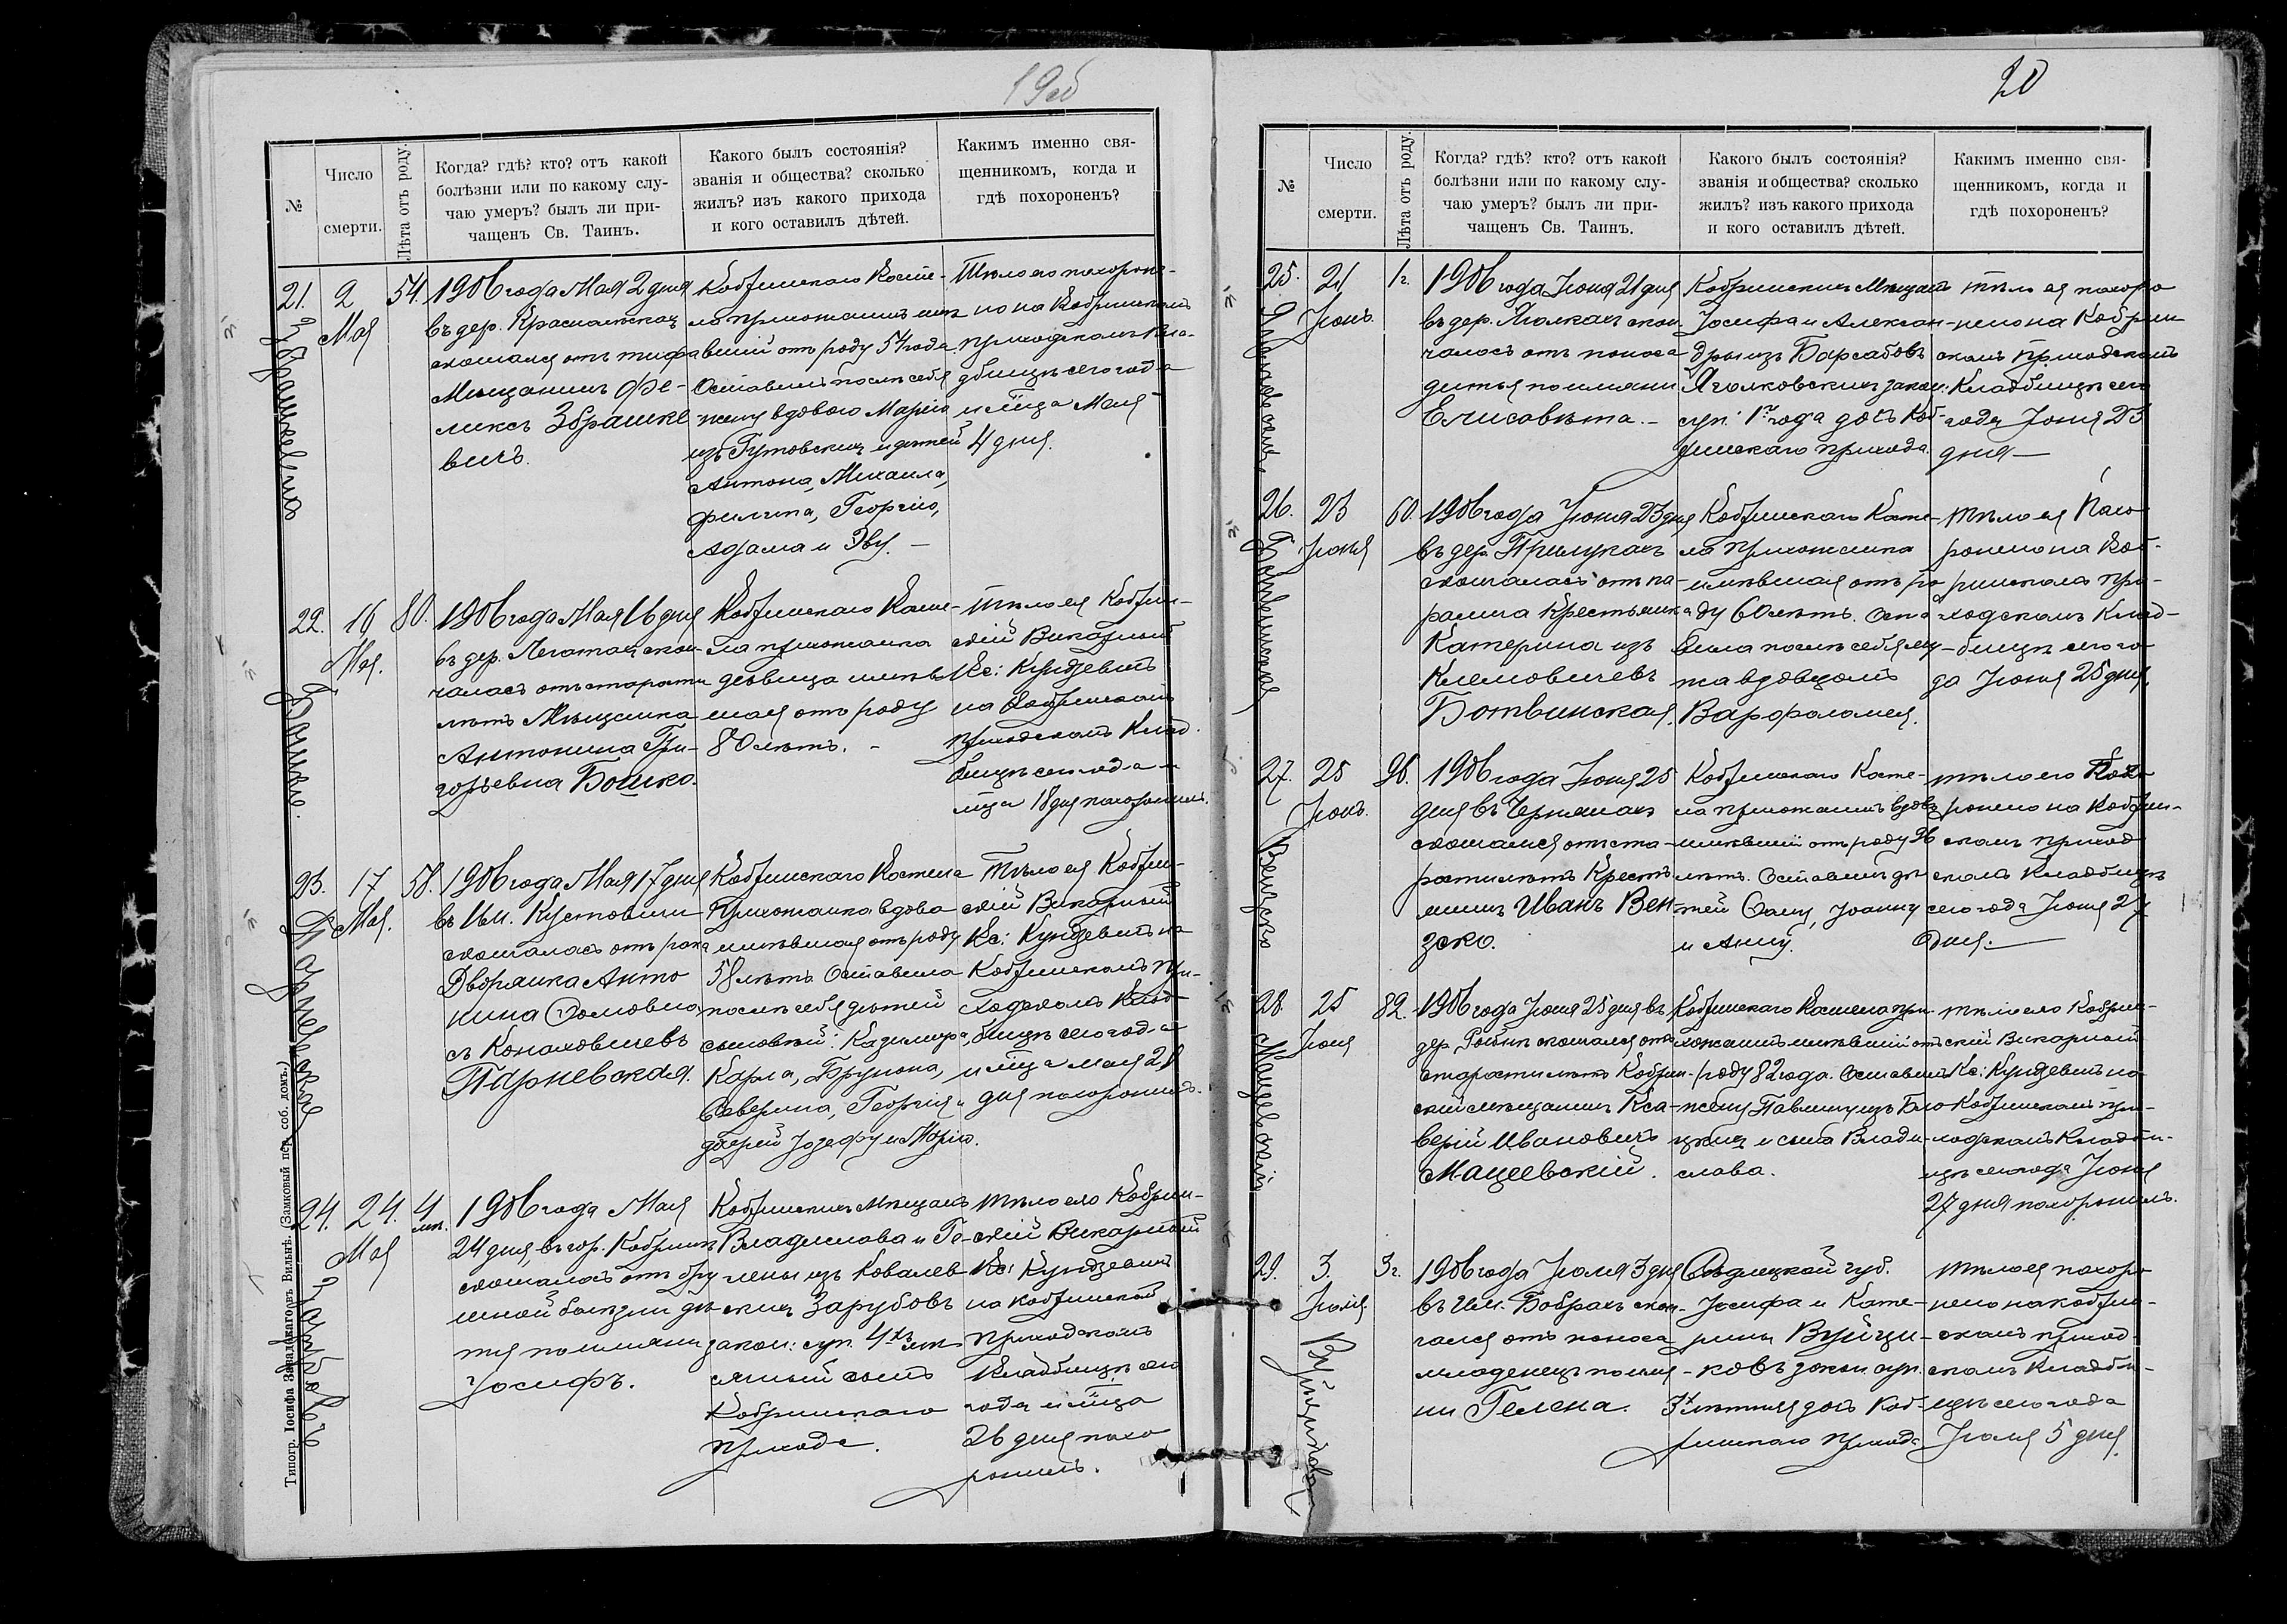 19об
№
Число
смерти.
Лѣта отъ роду.
Когда? гдѣ? кто? отъ какой
болѣзни или по какому слу-
чаю умеръ? былъ ли при-
чащенъ Св. Таинъ.
Какого былъ состоянія?
званія и общества? сколько
жилъ? изъ какого прихода
и кого оставилъ дѣтей.
Какимъ именно свя-
щенникомъ, когда и
гдѣ похороненъ?
21.
2
Мая
54.
1906 года Мая 2 дня
въ дер.
скончался отъ тифа
Мѣщанинъ Фе-
ликсъ Збрашке
вичъ.
Кобринскаго Косте-
ла прихожанинъ имѣ
вшій отъ роду 54 года.
Оставилъ послѣ себя
жену вдовою Марію
изъ Гутовскихъ и дѣтей
Антона, Михаила,
Филипа, Георгія,
Адама и Эву. —
Тѣло его похороне-
но на Кобринскомъ
приходскомъ кла-
дбищѣ сего года
и м̃ца Мая
4 дня.
22.
16
Мая.
80.
Бошко.
1906 года Мая 16 дня
въ дер. скон-
чалась отъ старости
лѣтъ Мѣщанка
Антонина Гри-
горьевна Бошко.
Кобринскаго Косте-
ла прихожанка
дѣвица имѣв
шая отъ роду
80 лѣтъ. -
Тѣло ея Кобрин-
скій Викарный
Кс: Кундзевичъ
на Кобринскомъ
приходскомъ клад-
бищѣ сего года и
м̃ца 18 дня похоронилъ.
23.
17
Мая.
58.
Парневская
1906 года Мая 17 дня
въ Им. Кустовичи
скончалась отъ рака
Дворянка Анто
нина Фомовна
съ Конаховичевъ
Парневская.
Кобринскаго Костела
Прихожанка вдова
имѣвшая отъ роду
58 лѣтъ. Оставила
послѣ себя дѣтей
сыновей: Казимира,
Карла, Брунона,
Северина, Георгія и
дочерей Юзефу и Марію.
Тѣло ея Кобрин-
скій Викарный
Кс: Кундзевичъ на
Кобринскомъ при-
ходскомъ клад-
бищѣ сего года
и м̃ца мая 21
дня похоронилъ.
24.
24.
Мая
4
мѣс.
1906 года Мая
24 дня, въ гор. Кобринѣ
скончалось отъ
болѣзни ди
тя по имяни
Іосифъ.
Кобринскихъ Мѣщанъ
Владислава и Ге-
лены изъ Ковалев
скихъ Зарубовъ
закон: суп. 4хъ мѣ-
сячный сынъ
Кобринскаго
прихода.
Тѣло его Кобрин-
скій Викарный
Кс: Кундзевичъ
на Кобринскомъ
приходскомъ
Кладбищѣ сего
года и м̃ца
26 дня похо
ронилъ.
Типогр. Іосифа Завадскаго въ Вильнѣ. (Замковый пер. соб. домъ.)
20
№
Число
смерти.
Лѣта отъ роду.
Когда? гдѣ? кто? отъ какой
болѣзни или по какому слу-
чаю умеръ? былъ ли при-
чащенъ Св. Таинъ.
Какого былъ состоянія?
званія и общества? сколько
жилъ? изъ какого прихода
и кого оставилъ дѣтей.
Какимъ именно свя-
щенникомъ, когда и
гдѣ похороненъ?
25.
21
Іюнь.
1г.
1906 года Іюня 21 дня
въ дер. скон-
чалось отъ поноса
дитя по имяни
Елисавѣта. -
Кобринскихъ Мѣщанъ
Іосифа и Алексан-
дры изъ Барсабовъ
Яголковскихъ закон:
суп: 1го года дочь Коб-
ринскаго прихода.
тѣло ея похоро
нено на Кобрин
скомъ Приходскомъ
Кладбищѣ сего
года Іюня 23
дня —
26.
23
Іюня
60.
Ботвинская
1906 года Іюня 23 дня
въ дер. Прилукахъ
скончалась отъ па-
ралича Крестьянка
Катерина изъ
Климовичевъ
Ботвинская.
Кобринскаго Косте-
ла прихожанка
имѣвшая отъ ро
ду 60 лѣтъ. Оста
вила послѣ себя му-
жа вдовцомъ
Варфоломея.
тѣло ея Похо
ронено на Коб-
ринскомъ при-
ходскомъ клад-
бищѣ сего го
да Іюня 25 дня.
27.
25
Іюнь.
96.
Вензско
1906 года Іюня 25
дня въ
скончался отъ ста-
рости лѣтъ Кресть
янинъ Иванъ Вен-
зско.
Кобринскаго Косте-
ла прихожанинъ вдовъ
имѣвшій отъ роду 96
лѣтъ. Оставилъ дѣ
тей Іоанну
и Анну.
тѣло его Похо
ронено на Кобрин-
скомъ приход
скомъ Кладбищѣ
сего года Іюня 27
дня. —
28.
25
Іюня
82.
Мацеевскій
1906 года Іюня 25 дня въ
дер. скончался отъ
старости лѣтъ Кобрин-
скій мѣщанинъ Кса-
верій Ивановичъ
Мацеевскій.
Кобринскаго Костела при-
хожанинъ имѣвшій отъ
роду 82 года. Оставилъ
жену Павлину изъ
и сына Влади-
слава.
тѣло его Кобрин-
скій Викарный
Кс: Кундзевичъ на
Кобринскомъ при-
ходскомъ Кладби-
щѣ сего года Іюня
27 дня похоронилъ.
29.
3.
Іюля.
3г.
1906 года Іюля 3 дня
въ Им. Бобрахъ скон-
чался отъ поноса
младенецъ по имя-
ни Гелена.
Сѣдлецкой губ.
Іосифа и Кате-
рины Вуйци-
ковъ закон. суп.
3хлѣтняя дочь Коб-
ринскаго прихода
тѣло ея похоро
нено на Кобрин-
скомъ приход-
скомъ Кладби-
щѣ сего года
Іюля 5 дня.